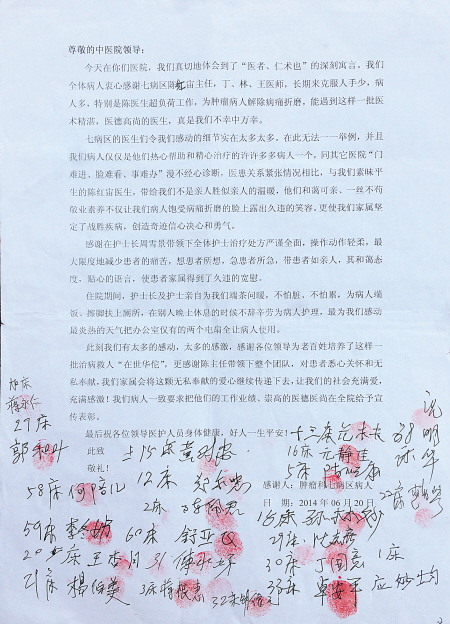 尊敬的中医院领导：
今天在你们医院，我们真切地体会到了“医者、仁术也”的深刻寓言。我们
全体病人衷心感谢七病区陈红宙主任，丁、林、王医师，长期来克服人手少，病
人多，特别是陈医生超负荷工作，为肿瘤病人解除病痛折磨，能遇到这样一批医
术精湛，医德高尚的医生，真是我们不幸中万幸。
七病区的医生们令我们感动的细节实在太多太多。在此无法一一举例，并且
我们病人仅仅是他们热心帮助和精心治疗的许许多多病人一个，同其它医院“门
难进、脸难看、事难办”漫不经心诊断，医患关系紧张情况相比，与我们素昧平
生的陈红宙医生，带给我们不是亲人胜似亲人的温暖，他们和蔼可亲、一丝不苟
敬业素养不仅让我们病人饱受病痛折磨的脸上露出久违的笑容，更使我们家属坚
定了战胜疾病，创造奇迹信心决心和勇气。
感谢在护士长周雪景带领下全体护士治疗处方严谨全面，操作动作轻柔，最
大限度地减少患者的痛苦，想患者所想，急患者所急，带患者如亲人，真和蔼态
度，贴心的语言，使患者家属得到了久违的宽慰。
住院期间，护士长及护士亲自为我们端茶问暖，不怕脏、不怕累，为病人端
饭、擦脚扶上厕所，在别人晚上休息的时候不辞辛劳为病人护理，最为我们感动
最炎热的天气把办公室仅有的两个电扇全让病人使用。
此刻我们有太多的感动，太多的感激，感谢各位领导为老百姓培养了这样一
批治病救人“在世华佗”，更感谢陈主任带领下整个团队，对患者悉心关怀和无
私奉献，我们家属会将这颗无私奉献的爱心继续传递下去，让我们的社会充满爱，
充满感激！我们病人一致要求把他们的工作业绩、崇高的医德医尚在全院给予宣
传表彰。
最后祝各位领导医护人员身体健康，好人一生平安！
此致
敬礼！
感谢人：肿瘤和七病区病人
日 期：2014年06月20日
27床
15床
16床
5床
58床
12床
2床
22床
59床
60床
15床
29床
20床
31
30床 丁国亮 1床
21床 杨伯美
3床
32床
33床 卓安平